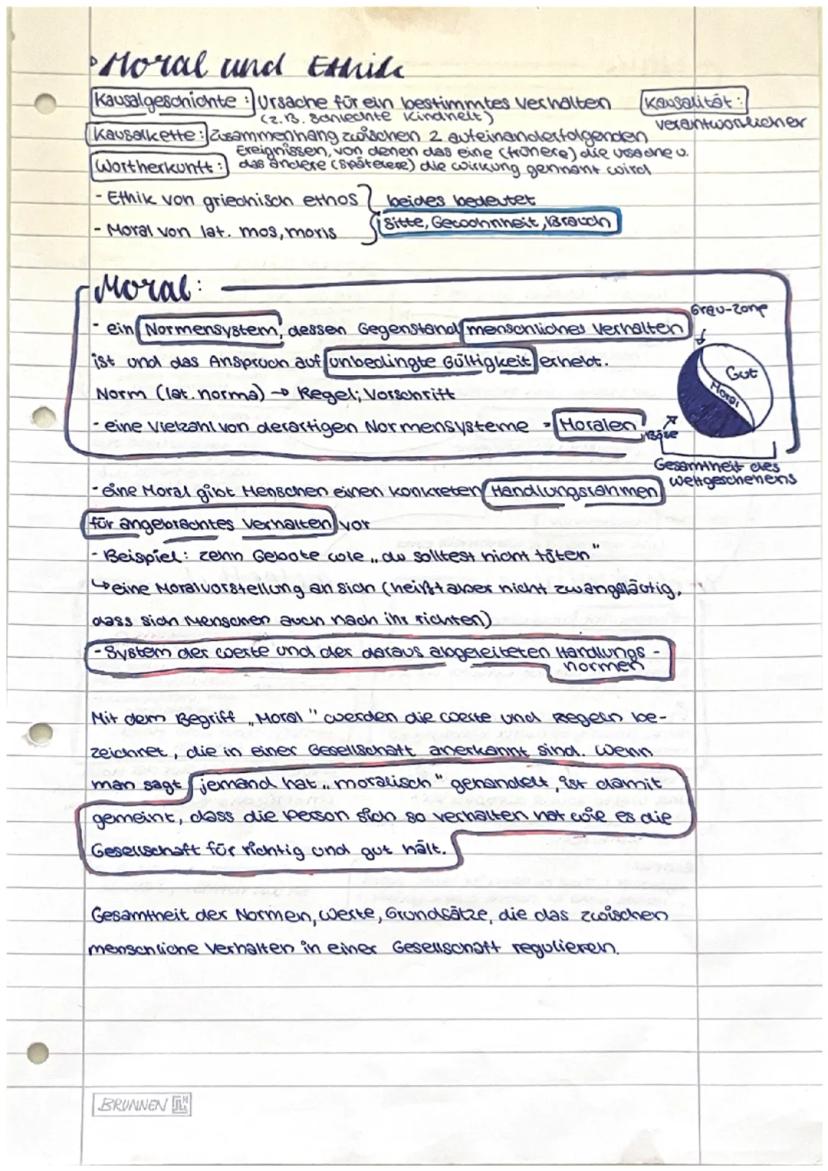 Moral und Ethik
Kausalgeschichte: Ursache für ein bestimmtes Verhalten
(z.B. schlechte Kindheit)
Kausalität:
verantwortlicher
Kausalkette: Zusammenhang zwischen 2 aufeinanderfolgenden
Ereignissen, von denen das eine (frühere) die Ursache u.
das andere (spätere) die Wirkung genannt wird
Wortherkunft:
- Ethik von griechisch ethos
- Moral von lat. mos, moris
beides bedeutet
Sitte, Gewohnheit, Brauch
Moral:
- ein Normensystem, dessen Gegenstand menschliches Verhalten
ist und das Anspruch auf unbedingte Gültigkeit erhebt.
Norm (lat. norma) → Regel; Vorschrift
- eine Vielzahl von derartigen Normensysteme = Moralen
Grau-zone
Gut
Moral
Böse
Gesamtheit des
Weltgeschehens
- eine Moral gibt Menschen einen konkreten Handlungsrahmen
für angebrachtes Verhalten vor
- Beispiel: zehn Gebote wie „du solltest nicht töten"
↳ eine Moralvorstellung an sich (heißt aber nicht zwangsläufig,
dass sich Menschen auch nach ihr richten)
- System der Werte und der daraus abgeleiteten Handlungs-
normen
Mit dem Begriff „Moral" werden die Werte und Regeln be-
zeichnet, die in einer Gesellschaft anerkannt sind. Wenn
man sagt jemand hat „moralisch" gehandelt, ist damit
gemeint, dass die Person sich so verhalten hat wie es die
Gesellschaft für richtig und gut hält.
Gesamtheit der Normen, Werte, Grundsätze, die das zwischen
menschliche Verhalten in einer Gesellschaft regulieren.
BRUNNEN